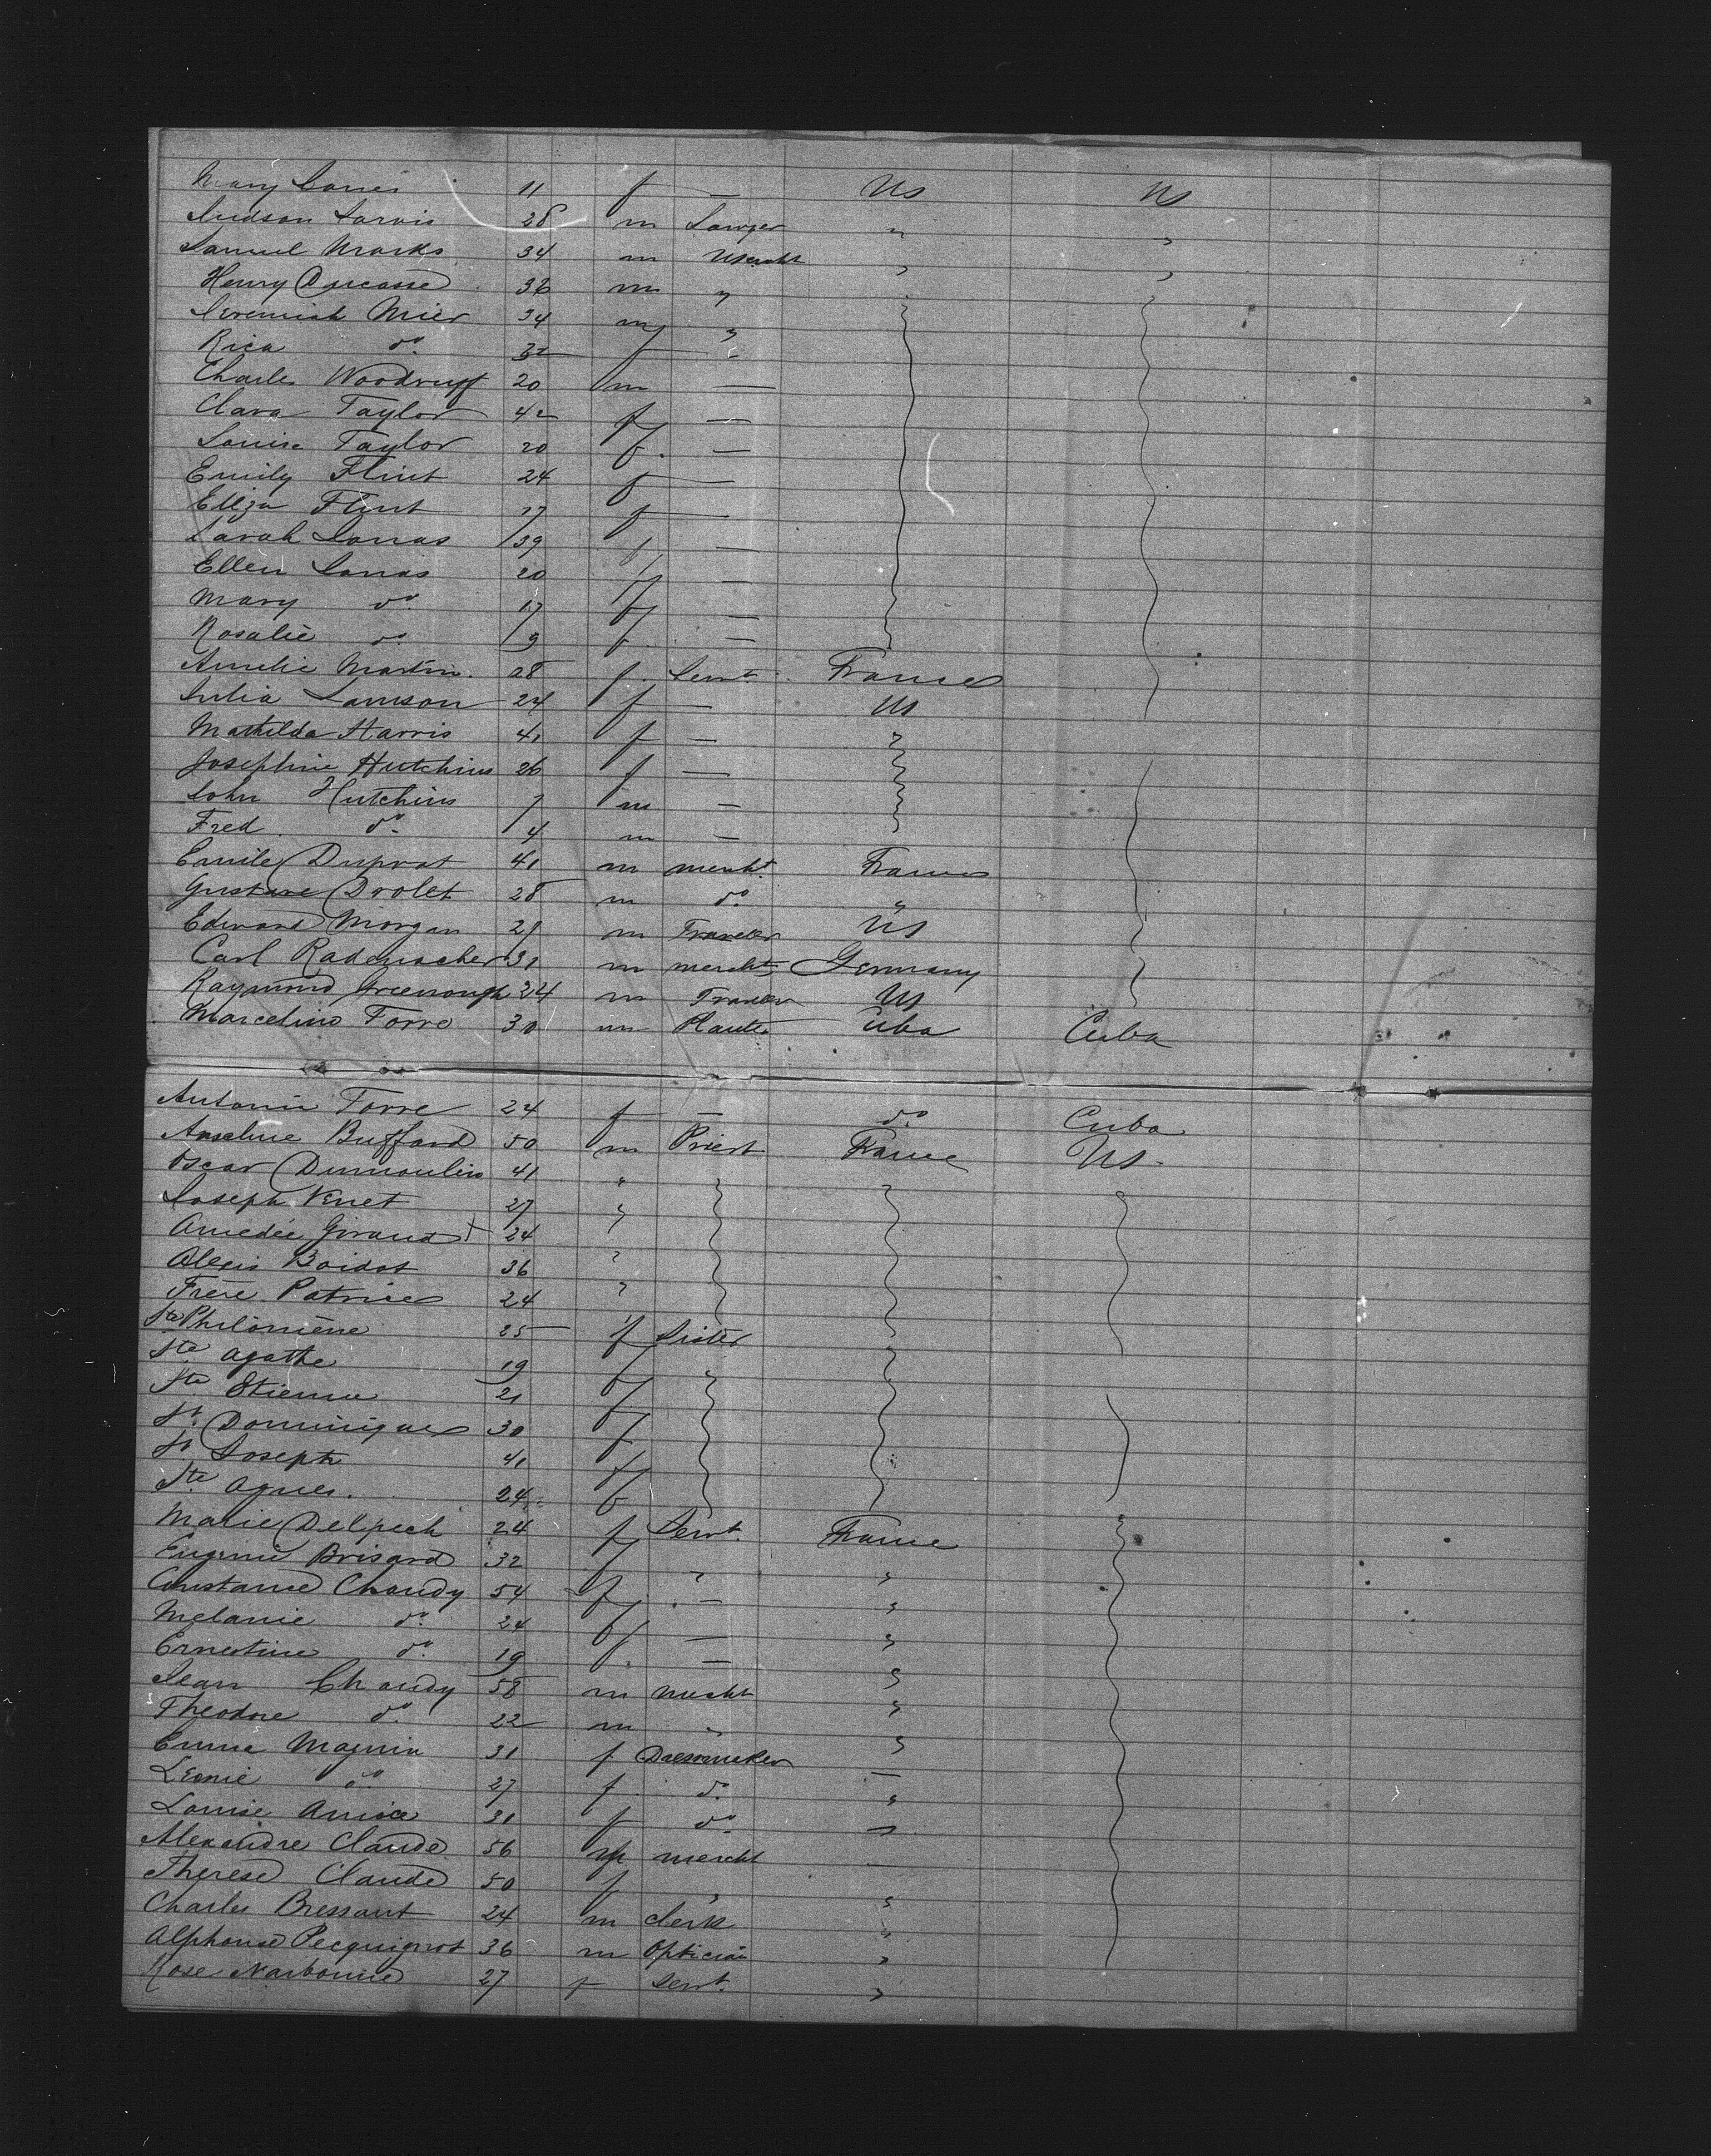 Mary 11 f — US US
Judson Jarvis 28 m Lawyer " "
Samuel Marks 34 m Mercht " "
Henry Ducasse 36 m "
Jeremiah Mier 34 m "
Rica do 32 f "
Charles Woodruff 20 m —
Clara Taylor 42 f —
Louise Taylor 20 f. —
Emily Flint 24 f —
Eliza Flint 17 f —
Sarah 39 f —
Ellen 20 f —
Mary do 17 f —
Rosalie do 9 f —
Amelie Martin. 28 f. Servt. France
Julia Lamson 24 f — US
Mathilda Harris 41 f — "
Josephine Hutchins 26 f —
John Hutchins 7 m —
Fred. do 4 m —
Emile Duprat 41 m mercht. France
Gustave Drolet 28 m do "
Edward Morgan 29 m Traveler US
Carl Rademacher 31 m mercht Germany
Raymond Greenough 24 m Traveler US
Marcelino Torre 30 m Planter Cuba Cuba
Antonia Torre 24 f — do Cuba
Anselme Buffard 50 m Priest France US.
Oscar Dumoulin 41 "
Joseph Venet 27 "
Amedée Giraud 24
Alexis Boidot 36 "
Frère Patrice 24 "
Ste Philomène 25 f Sister
Ste Agathe 19 f "
Ste Etienne 21 f
St. Dominique 30 f
St Joseph 41 f
Ste Agnes. 24 f
Marie Delpech 24 f Servt. France
Eugenie Brisard 32 f " "
Constance Chaudy 54 f. — "
Melanie do 24 f — "
Ernestine do 19 f. — "
Jean Chaudy 58 m mercht "
Theodore do 22 m " "
Emma Magnin 31 f Dressmaker —
Leonie do 27 f do "
Louise 31 f do "
Alexandre Claude 56 m mercht —
Therese Claude 50 f " "
Charles Bressant 24 m clerk "
Alphonse Pecquignot 36 m Optician "
Rose Narbonne 27 f servt. "